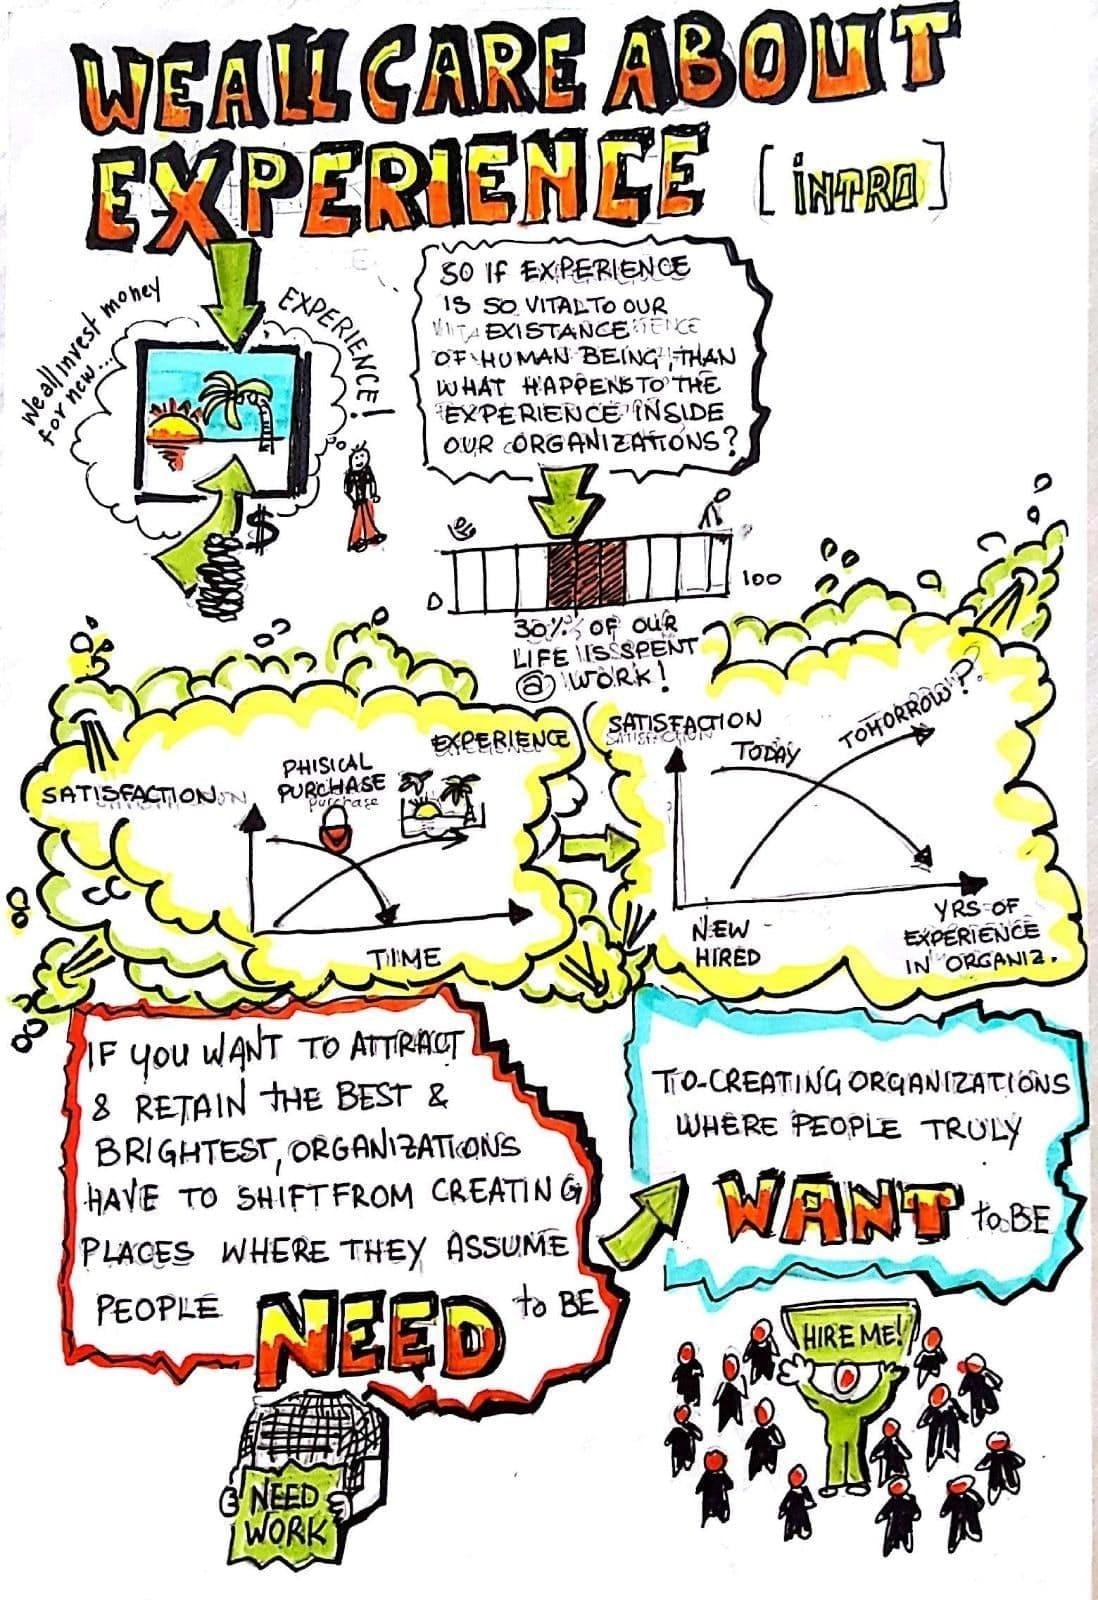 WE ALL CARE ABOUT
EXPERIENCE [INTRO]
We all invest money
for new...
EXPERIENCE!
$
SO IF EXPERIENCE
IS SO VITAL TO OUR
EXISTANCE
OF HUMAN BEING, THAN
WHAT HAPPENS TO THE
EXPERIENCE INSIDE
OUR ORGANIZATIONS?
0
100
30% OF OUR
LIFE IS SPENT
@ WORK!
SATISFACTION
PHISICAL
PURCHASE
purchase
EXPERIENCE
TIME
SATISFACTION
TODAY
TOMORROW?
NEW
HIRED
YRS OF
EXPERIENCE
IN ORGANIZ.
IF YOU WANT TO ATTRACT
& RETAIN THE BEST &
BRIGHTEST, ORGANIZATIONS
HAVE TO SHIFT FROM CREATING
PLACES WHERE THEY ASSUME
PEOPLE NEED to BE
TO CREATING ORGANIZATIONS
WHERE PEOPLE TRULY
WANT to BE
NEED
WORK
HIRE ME!